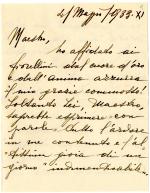 2/ Maggio/1933-XI
Maestro,
ho affidato ai
fiorellini dal cuore d'oro
e dell'anima azzurra
il mio grazie commosso!
Soltanto Lei, Maestro,
saprebbe esprimere con
parole. Tutto l'ardore
in me contenuto e l'al
tissima gioia di un
giorno indimenticabile.